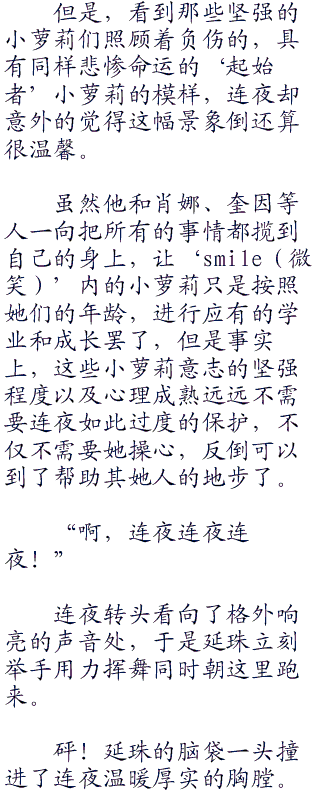 但是，看到那些坚强的
小萝莉们照顾着负伤的，具
有同样悲惨命运的‘起始
者’小萝莉的模样，连夜却
意外的觉得这幅景象倒还算
很温馨。
虽然他和肖娜、奎因等
人一向把所有的事情都揽到
自己的身上，让‘smile（微
笑）’内的小萝莉只是按照
她们的年龄，进行应有的学
业和成长罢了，但是事实
上，这些小萝莉意志的坚强
程度以及心理成熟远远不需
要连夜如此过度的保护，不
仅不需要她操心，反倒可以
到了帮助其她人的地步了。
“啊，连夜连夜连
夜！”
连夜转头看向了格外响
亮的声音处，于是延珠立刻
举手用力挥舞同时朝这里跑
来。
砰！延珠的脑袋一头撞
进了连夜温暖厚实的胸膛。